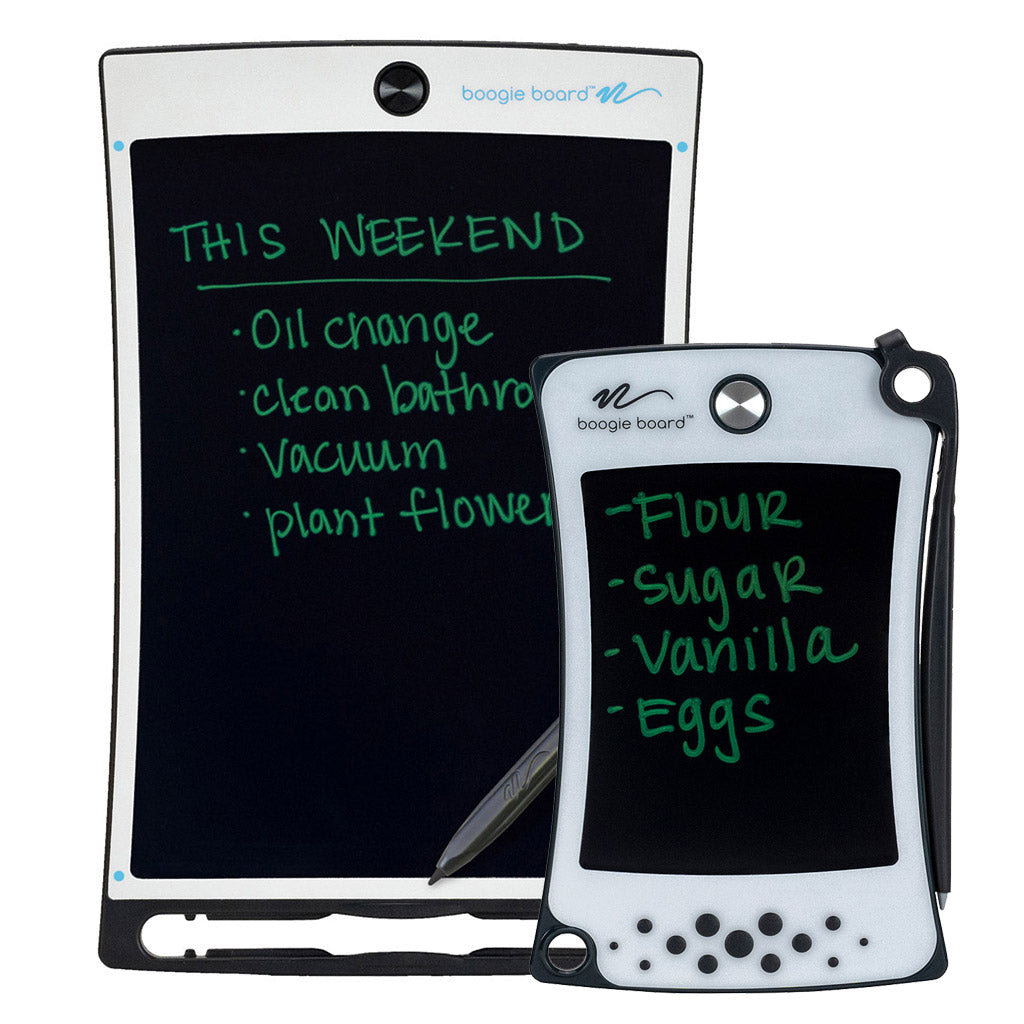 boogie board™
THIS WEEKEND
· Oil change
· clean bathro
· Vacuum
· plant flower
boogie board™
- Flour
- Sugar
- Vanilla
- Eggs